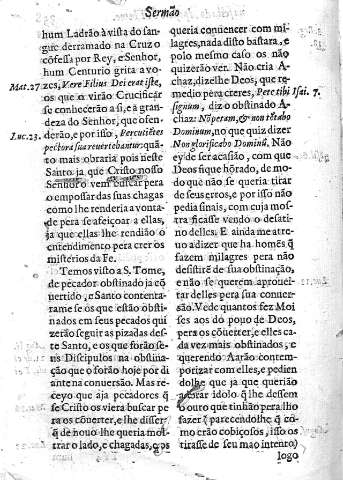 Sermão
hum Ladrão à vista do san-
gue derramado na Cruz o
cõfessa por Rey, e Senhor,
hum Centurio grita a vo-
Mat. 27. zes, Vere Filius Dei erat iste,
os que o virão Crucificar
se conhecerão a si, e a gran-
deza do Senhor, que ofen-
Luc. 23. derão, e por isso, Percutiẽtes
pectora sua reuertebantur: quã-
to mais obraria pois neste
Santo ja que Cristo nosso
Senhor o vem buscar pera
o empossar das suas chagas
como lhe renderia a vonta-
de pera se afeiçoar a ellas,
ja que ellas lhe rendião o
entendimento pera crer os
misterios da Fe.
Temos visto a S. Tome,
de pecador obstinado ja cõ
uertido, e Santo contenta-
rame se os que estão obsti-
nados em seus pecados qui
zerão seguir as pizadas des-
te Santo, e os que forão se-
us Discipulos na obstina-
ção que o forão hoje por di
ante na conuersão. Mas re-
ceyo que aja pecadores q̃
se Cristo os viera buscar pe
ra os cõuerter, e lhe disser
q̃ de nouo lhe queria mos
trar o lado, e chagadas, q̃ os
queria conuencer com mi-
lagres, nada disto bastara, e
polo mesmo caso os não
quizerão ver. Não cria A-
chaz, dizelhe Deos, que re-
medio pera creres, Pete tibi Isai. 7.
signum, diz o obstinado A-
chaz: Nõ petam, & non tẽtabo
Dominum, no que quiz dizer
Non glorificabo Dominũ. Não
ey de ser acasião, com que
Deos fique hõrado, de mo-
do que não se queria tirar
de seus erros, e por isso não
pedia sinais, com cuja mos
tra ficasse vendo o desati-
no delles. E ainda me atre-
uo a dizer que ha homẽs q̃
fazem milagres pera não
desistirẽ de sua obstinação,
e não se querem aprouei-
tar delles pera sua conuer-
são. Vede quantos fez Moi
ses aos do pouo de Deos,
pera os cõuerter, e elles ca-
da vez mais obstinados, e
querendo Aarão contem-
porizar com elles, e pedien
dolhe que ja que querião
adorar idolo q̃ lhe dessem
o ouro que tinhão pera lho
fazer (parecendolhe q̃ co-
mo erão cobiçosos, isso os
tirasse de seu mao intento)
logo